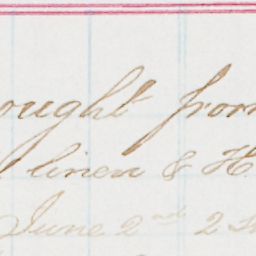 ought from
linen & H
June 2nd 2